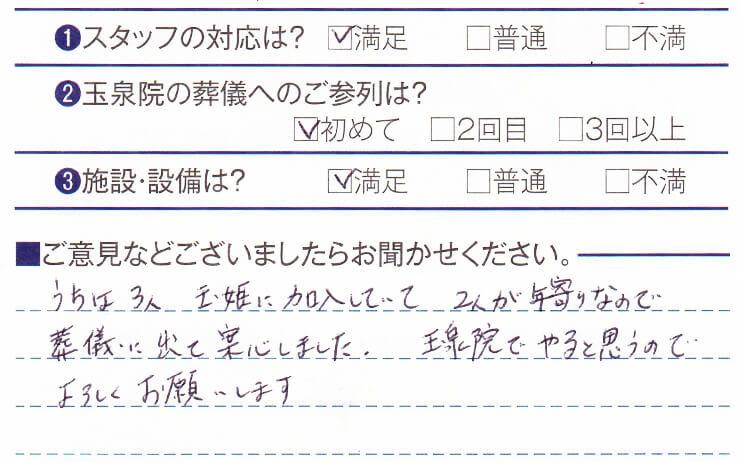 ❶スタッフの対応は? ☑満足 □普通 □不満
❷玉泉院の葬儀へのご参列は?
☑初めて □2回目 □3回以上
❸施設・設備は? ☑満足 □普通 □不満
■ご意見などございましたらお聞かせください。
うちは3人 玉姫に加入していて 2人が年寄りなので
葬儀に出て安心しました. 玉泉院でやると思うので
よろしくお願いします